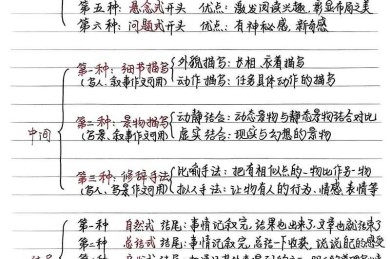 第五种：悬念式开头 优点：激发阅读兴趣，彰显布局之美
第六种：问题式开头 优点：有神秘感，新奇感
中间
第一种：细节描写
(写人、叙事作文可用)
外貌描写：长相、衣着描写
动作描写：任务具体动作的描写
第二种：景物描写
(写景、叙事作文可用)
动静结合：动态景物与静态景物结合对比
虚实结合：现实与幻想的景物
第三种：修辞手法
(写人、写景作文可用)
比喻手法：把有相似点的一物比作另一物
拟人手法：让物有人的行为、情感、表情等
第一种 自然式 结尾：事情记叙完，结果也出来了，文章也就结束了
第二种 总结式 结尾：事情记叙完，总结一下收获，说说自己的感受